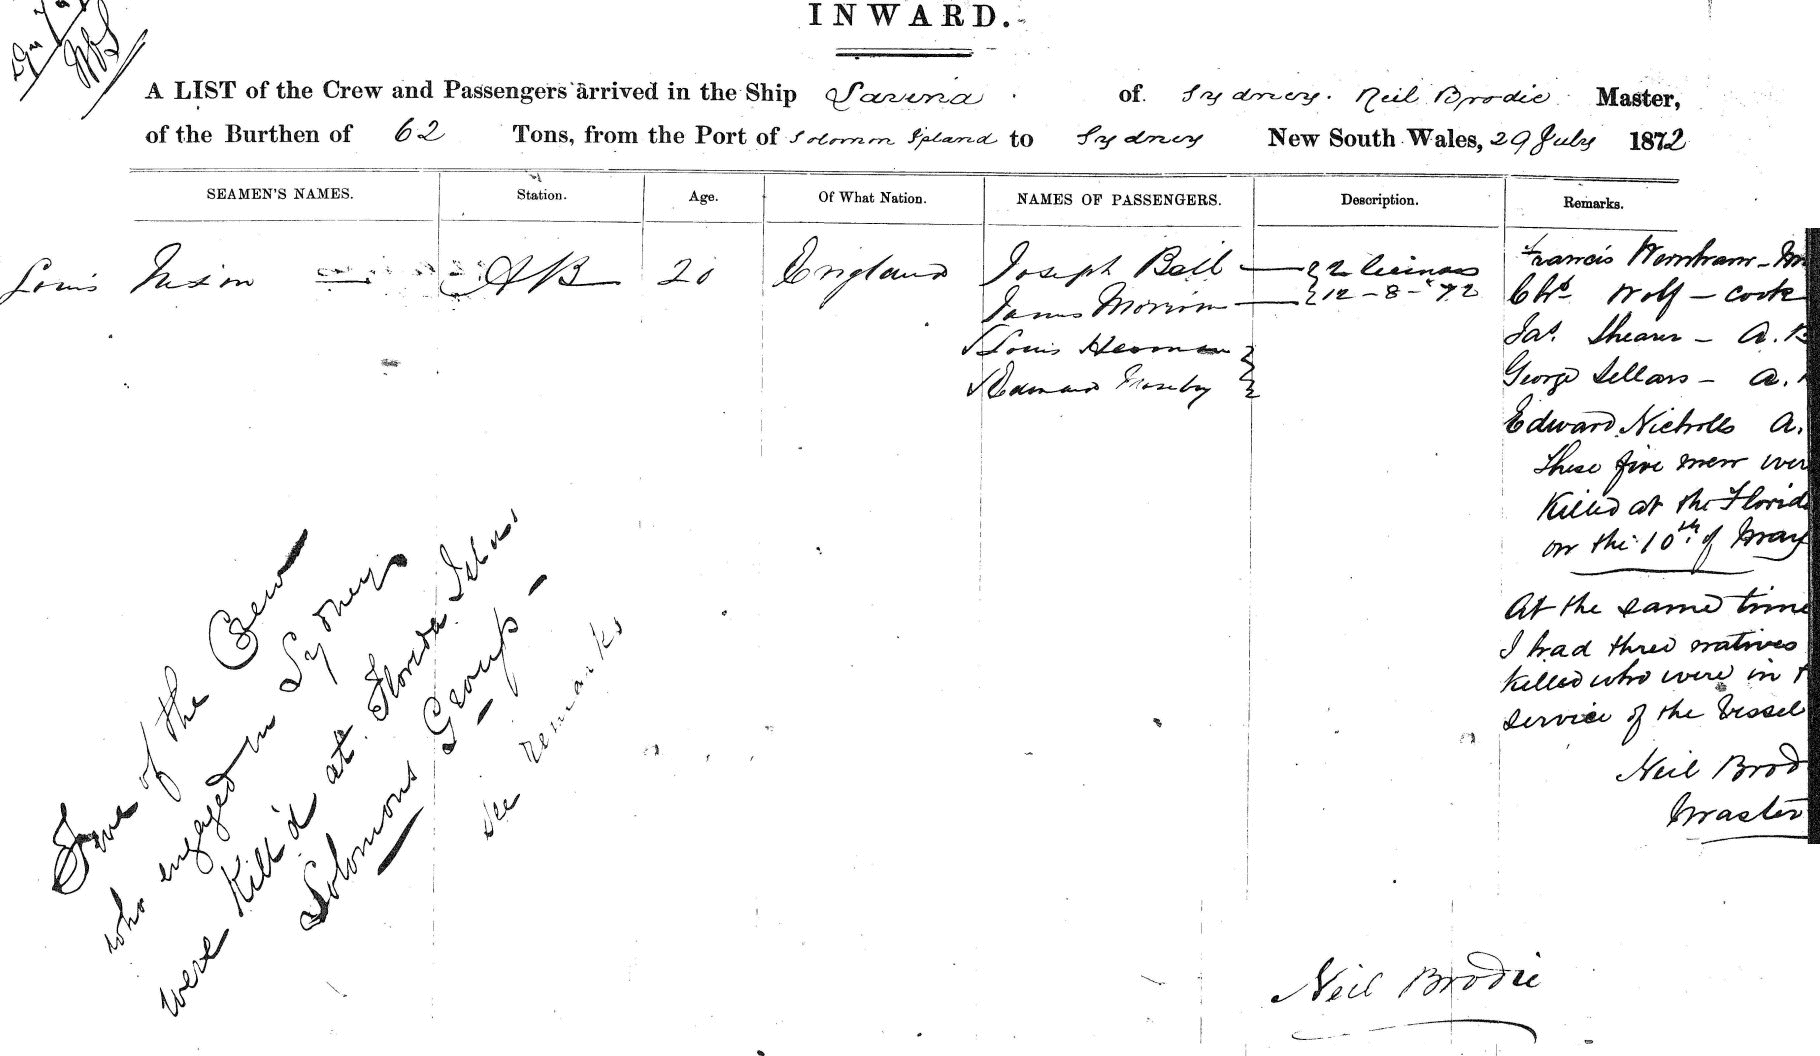 INWARD.
A LIST of the Crew and Passengers arrived in the Ship Lavinia of Sydney. Neil Brodie Master,
of the Burthen of 62 Tons, from the Port of Solomon Island to Sydney New South Wales, 29 July 1872
SEAMEN'S NAMES. Station. Age. Of What Nation. NAMES OF PASSENGERS. Description. Remarks.
Louis Nixon AB 20 England
Joseph Bell
James
Louis
Edward
2
12-8-72
Francis
Chs. Wolf - Cook
Jas. Shearer - A.B
George Sellars - A.
Edward Nicholls A.
These five men wer
Killed at the Florida
on the 10th of May
At the same time
I had three natives
killed who were in t
service of the Vessel
Neil Brod
Master
Five of the Crew
who engaged in Sydney
were Kill'd at Florida
Solomons Group -
see remarks
Neil Brodie